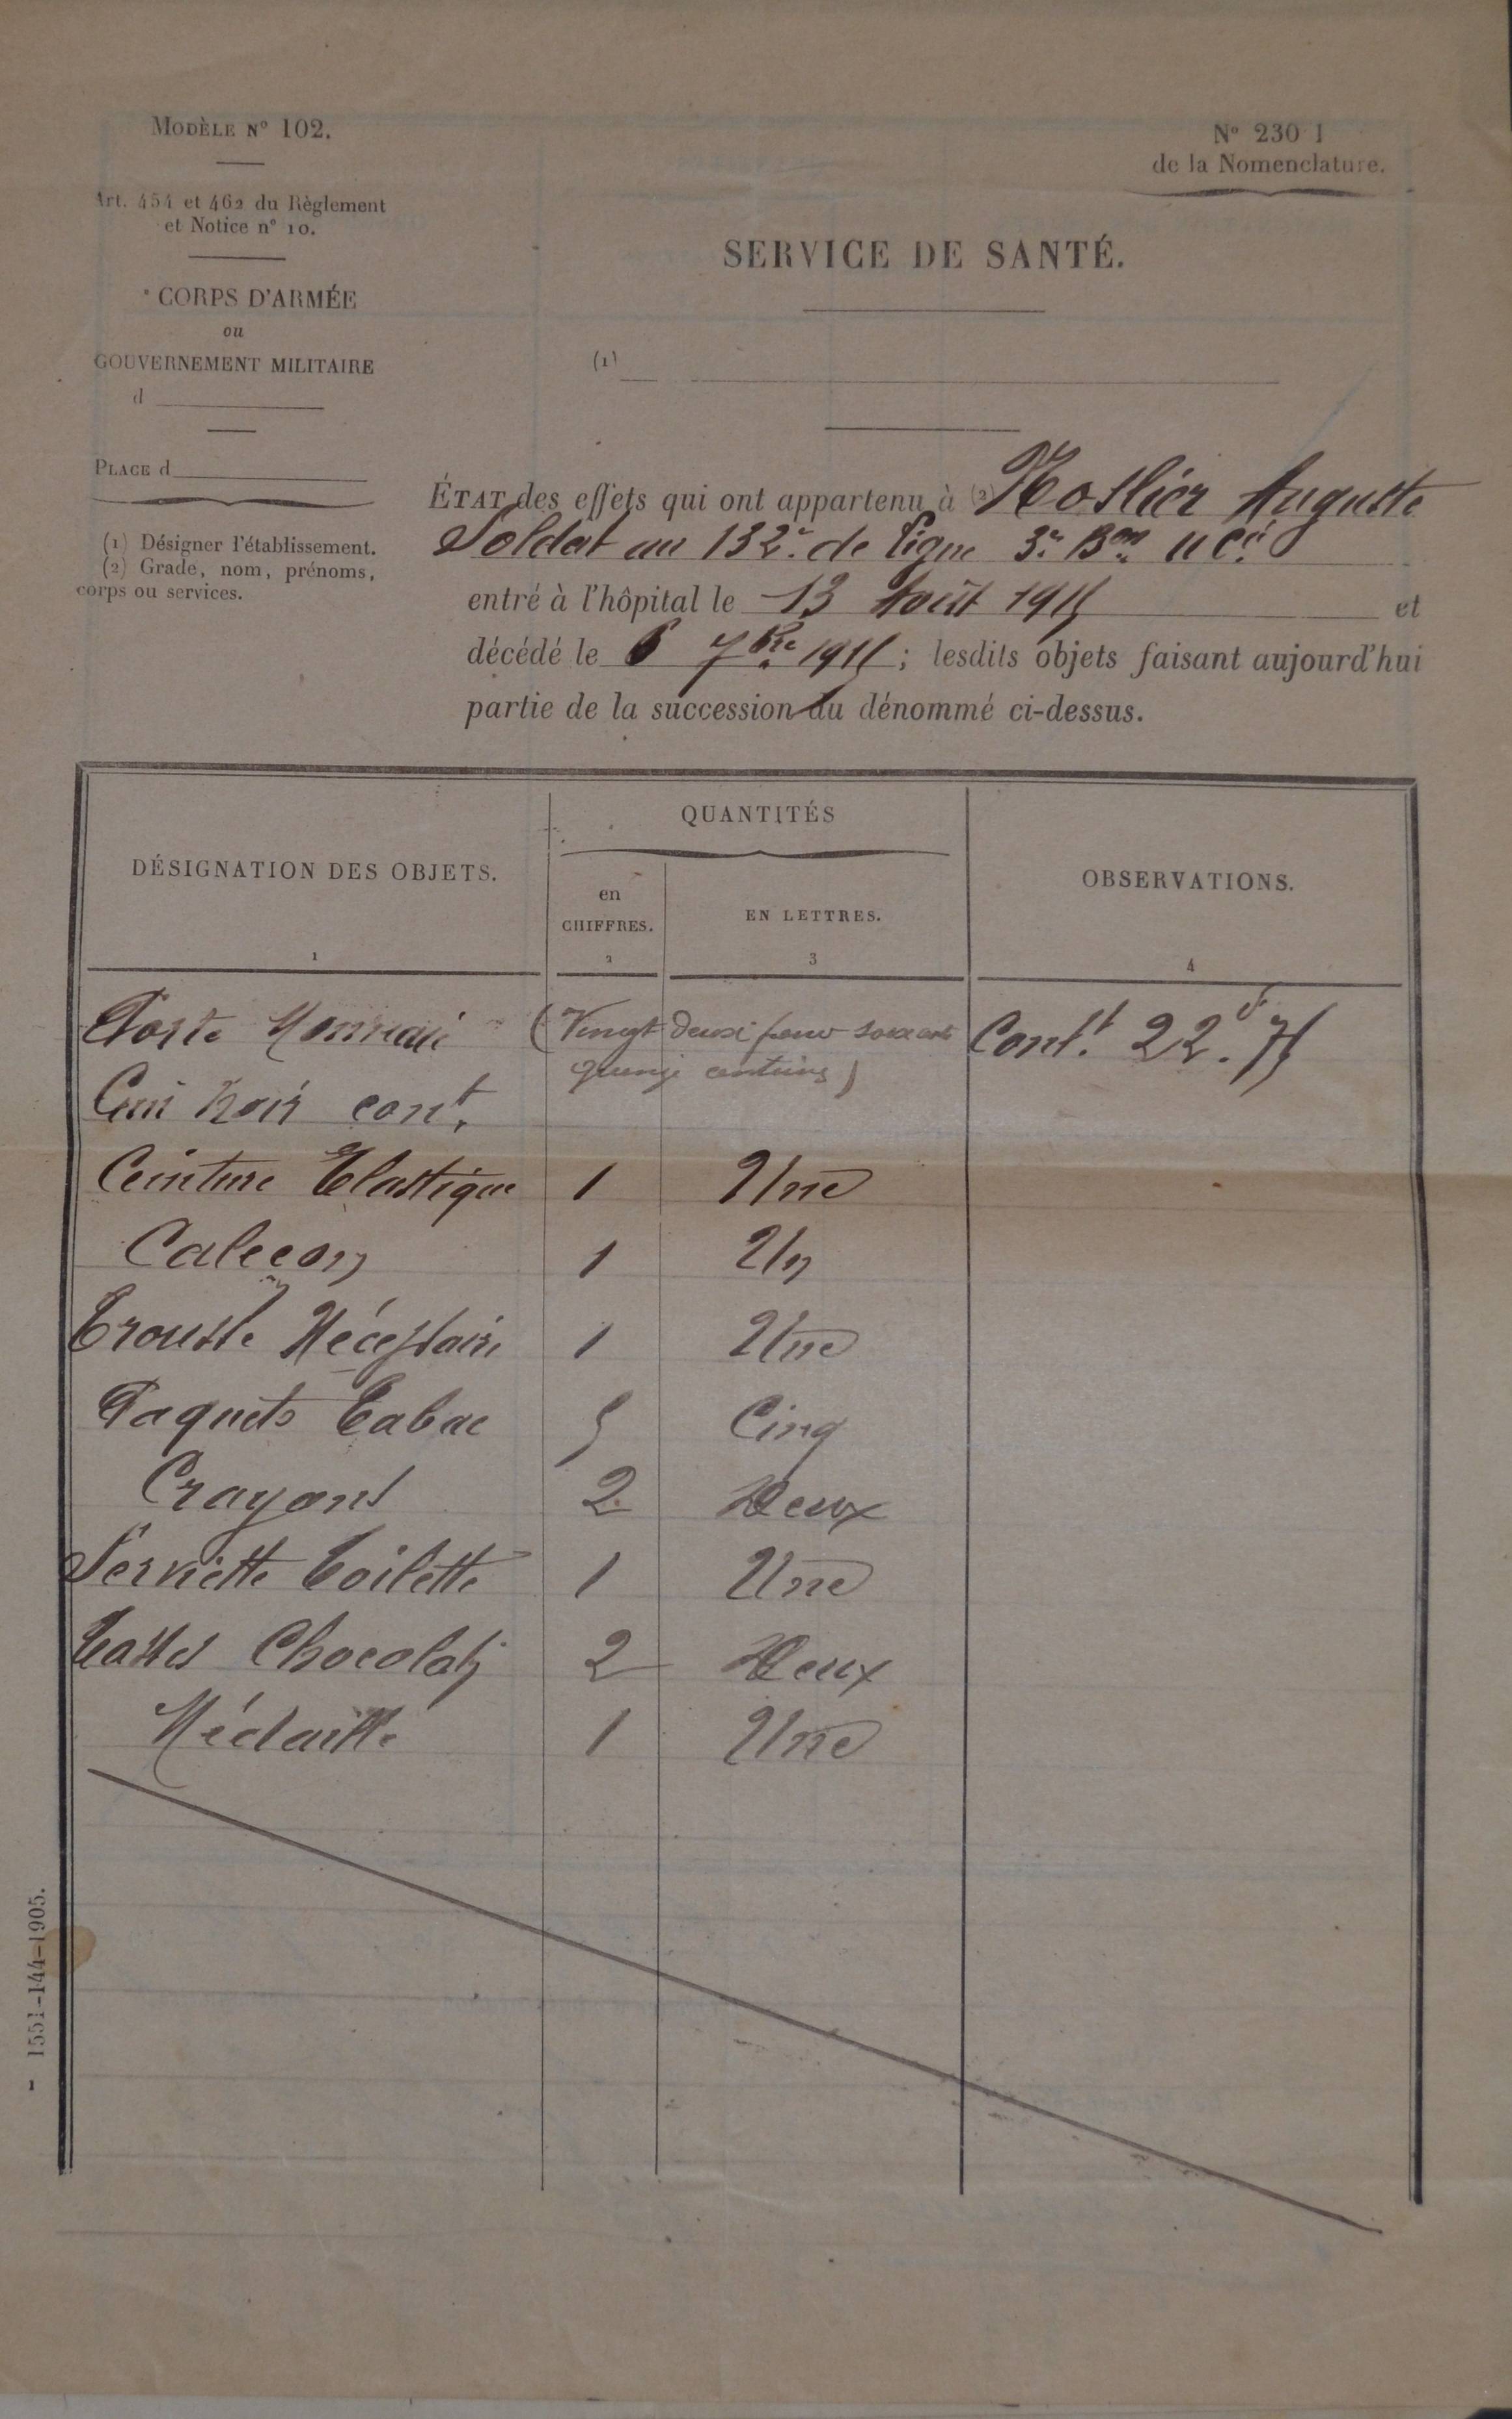 MODÈLE N° 102.
N° 230 I
de la Nomenclature.
Art. 454 et 462 du Règlement
et Notice n° 10.
SERVICE DE SANTÉ.
CORPS D'ARMÉE
ou
GOUVERNEMENT MILITAIRE
d
(1)
PLACE d
(1) Désigner l'établissement.
(2) Grade, nom, prénoms,
corps ou services.
ÉTAT des effets qui ont appartenu à (2) Hoslier Auguste
Soldat au 132e de ligne 3e Bon 11 Cie
entré à l'hôpital le 13 Août 1915 et
décédé le 6 7bre 1915 ; lesdits objets faisant aujourd'hui
partie de la succession du dénommé ci-dessus.
DÉSIGNATION DES OBJETS.
QUANTITÉS
OBSERVATIONS.
en
CHIFFRES.
EN LETTRES.
1 2 3 4
Porte Monnaie (Vingt deux francs soixante Cont. 22f.75
Cuir noir cont. quinze centimes)
Ceinture Elastique 1 Une
Calecon 1 Un
Trousse Nécessaire 1 Une
Paquets Tabac 5 Cinq
Crayons 2 Deux
Serviette Toilette 1 Une
Tasses Chocolat 2 Deux
Médaille 1 Une
- 1551-144-1905.